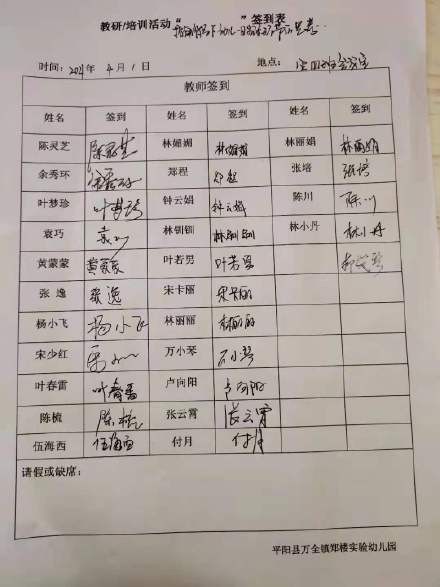 教研/培训活动“ ”签到表
时间: 2021年 4月1日 地点:
教师签到
姓名 签到 姓名 签到 姓名 签到
陈灵芝 陈灵芝 林媚媚 林媚媚 林丽娟 林丽娟
余秀环 余秀环 郑程 郑程 张培 张培
叶梦珍 叶梦珍 钟云娟 钟云娟 陈川 陈川
袁巧 袁巧 林钏钏 林钏钏 林小丹 林小丹
黄蒙蒙 黄蒙蒙 叶若男 叶若男
张逸 张逸 宋卡丽 宋卡丽
杨小飞 杨小飞 林丽丽 林丽丽
宋少红 万小琴 万小琴
叶春雷 叶春雷 卢向阳 卢向阳
陈梳 陈梳 张云霄 张云霄
伍海西 伍海西 付月 付月
请假或缺席:
平阳县万全镇郑楼实验幼儿园